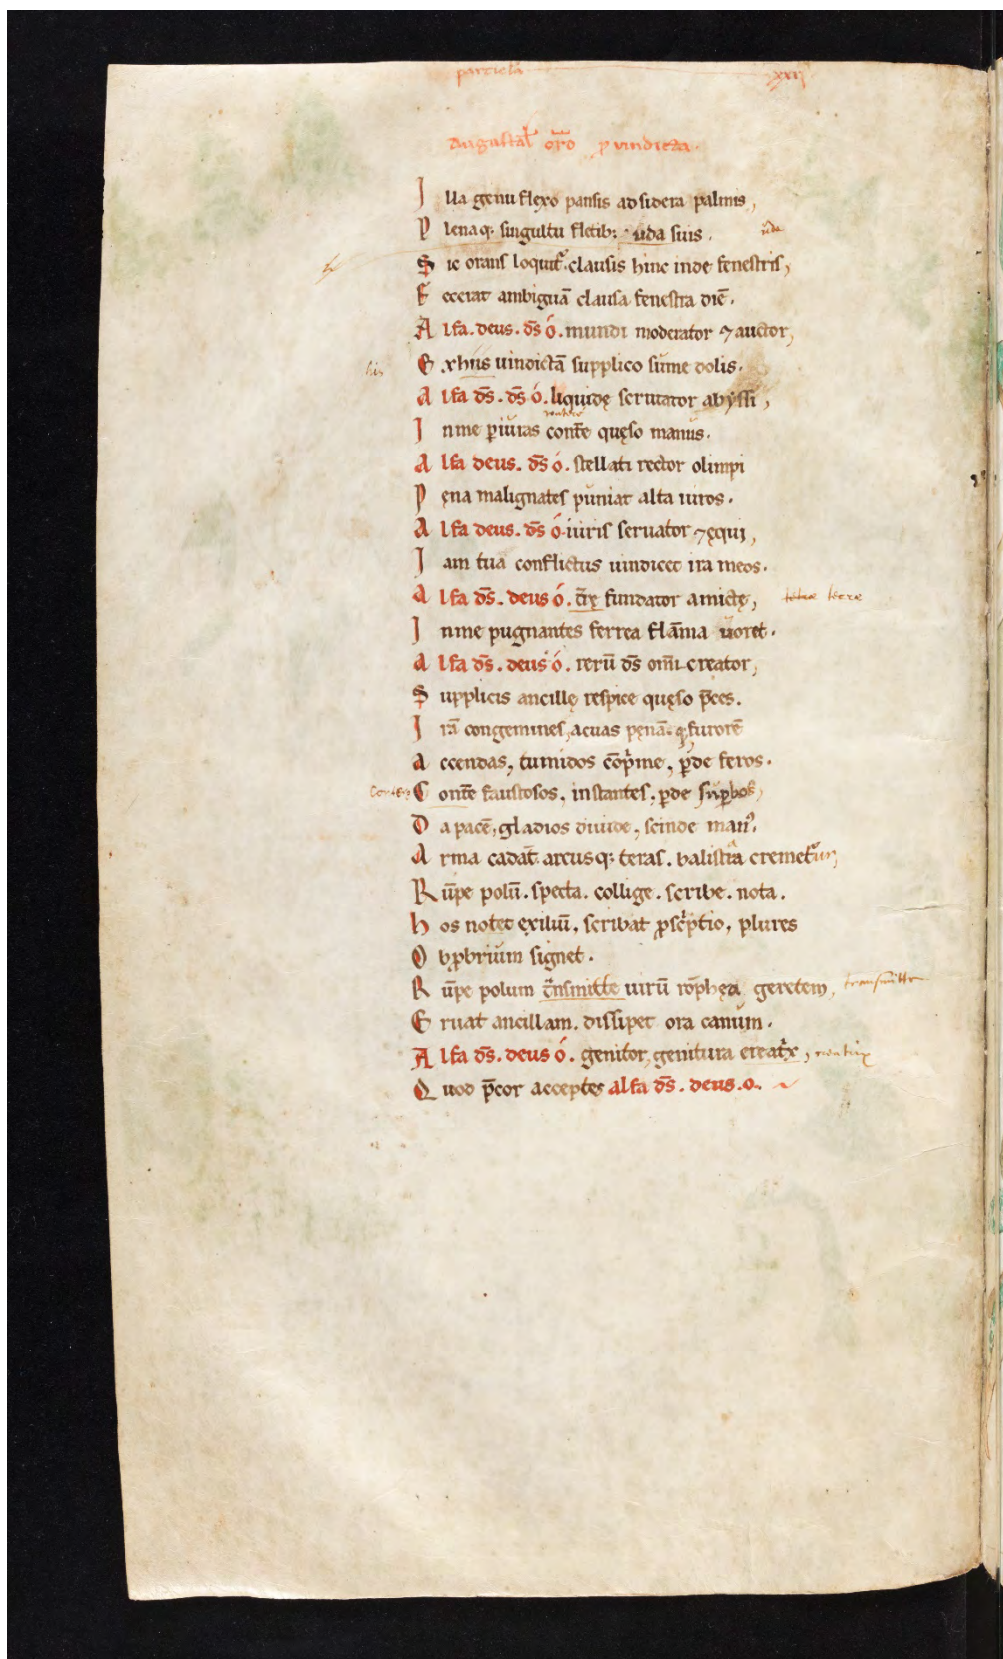 particula xxij
Augustal' oŕo p vindicta.
Illa genu flexo pansis ad sidera palmis,
Plenaq; singultu fletib; uda suis. uda
Sic orans loquit᷑. clausis hinc inde fenestris,
Fecerat ambiguā clausa fenestra diē.
Alfa. deus. d̄s ó. mundi moderator ⁊ auctor,
his Ex hiis uindictā supplico sume dolis.
Alfa d̄s. d̄s ó. liquidę scrutator abyssi,
In me ꝑiuras cont̄e quęso manus.
Alfa deus. d̄s ó. stellati rector olimpi
Pęna malignates puniat alta uiros.
Alfa deus. d̄s ó. iuris seruator ⁊ ęqui,
Iam tua conflictus uindicet ira meos.
Alfa d̄s. deus ó. t̄rę fundator amictę, terre
In me pugnantes ferrea flāma uoret.
Alfa d̄s. deus ó. rerū d̄s om̄i creator,
Supplicis ancillę respice quęso p̄ces.
Irā congemines, acuas pęnā. q; furorē
Accendas, tumidos cōp̄me, ꝑde feros.
Conte᷑ faustosos, instantes, ꝑde suꝑbos,
Da pacē, gladios diuide, scinde man⁹.
Arma cadāt. arcusq; teras. balistra cremetur,
Rūpe polū. specta. collige. scribe. nota.
Hos notet exiliū, scribat ꝓscͥptio, plures
Obꝓbrium signet.
Rūpe polum t̄nsmitte uirū rōphęa geretem, transmitte
Eruat ancillam. dissipet ora canum.
Alfa d̄s. deus ó. genitor, genitura creatͥx,
Quod p̄cor acceptes alfa d̄s. deus. o.